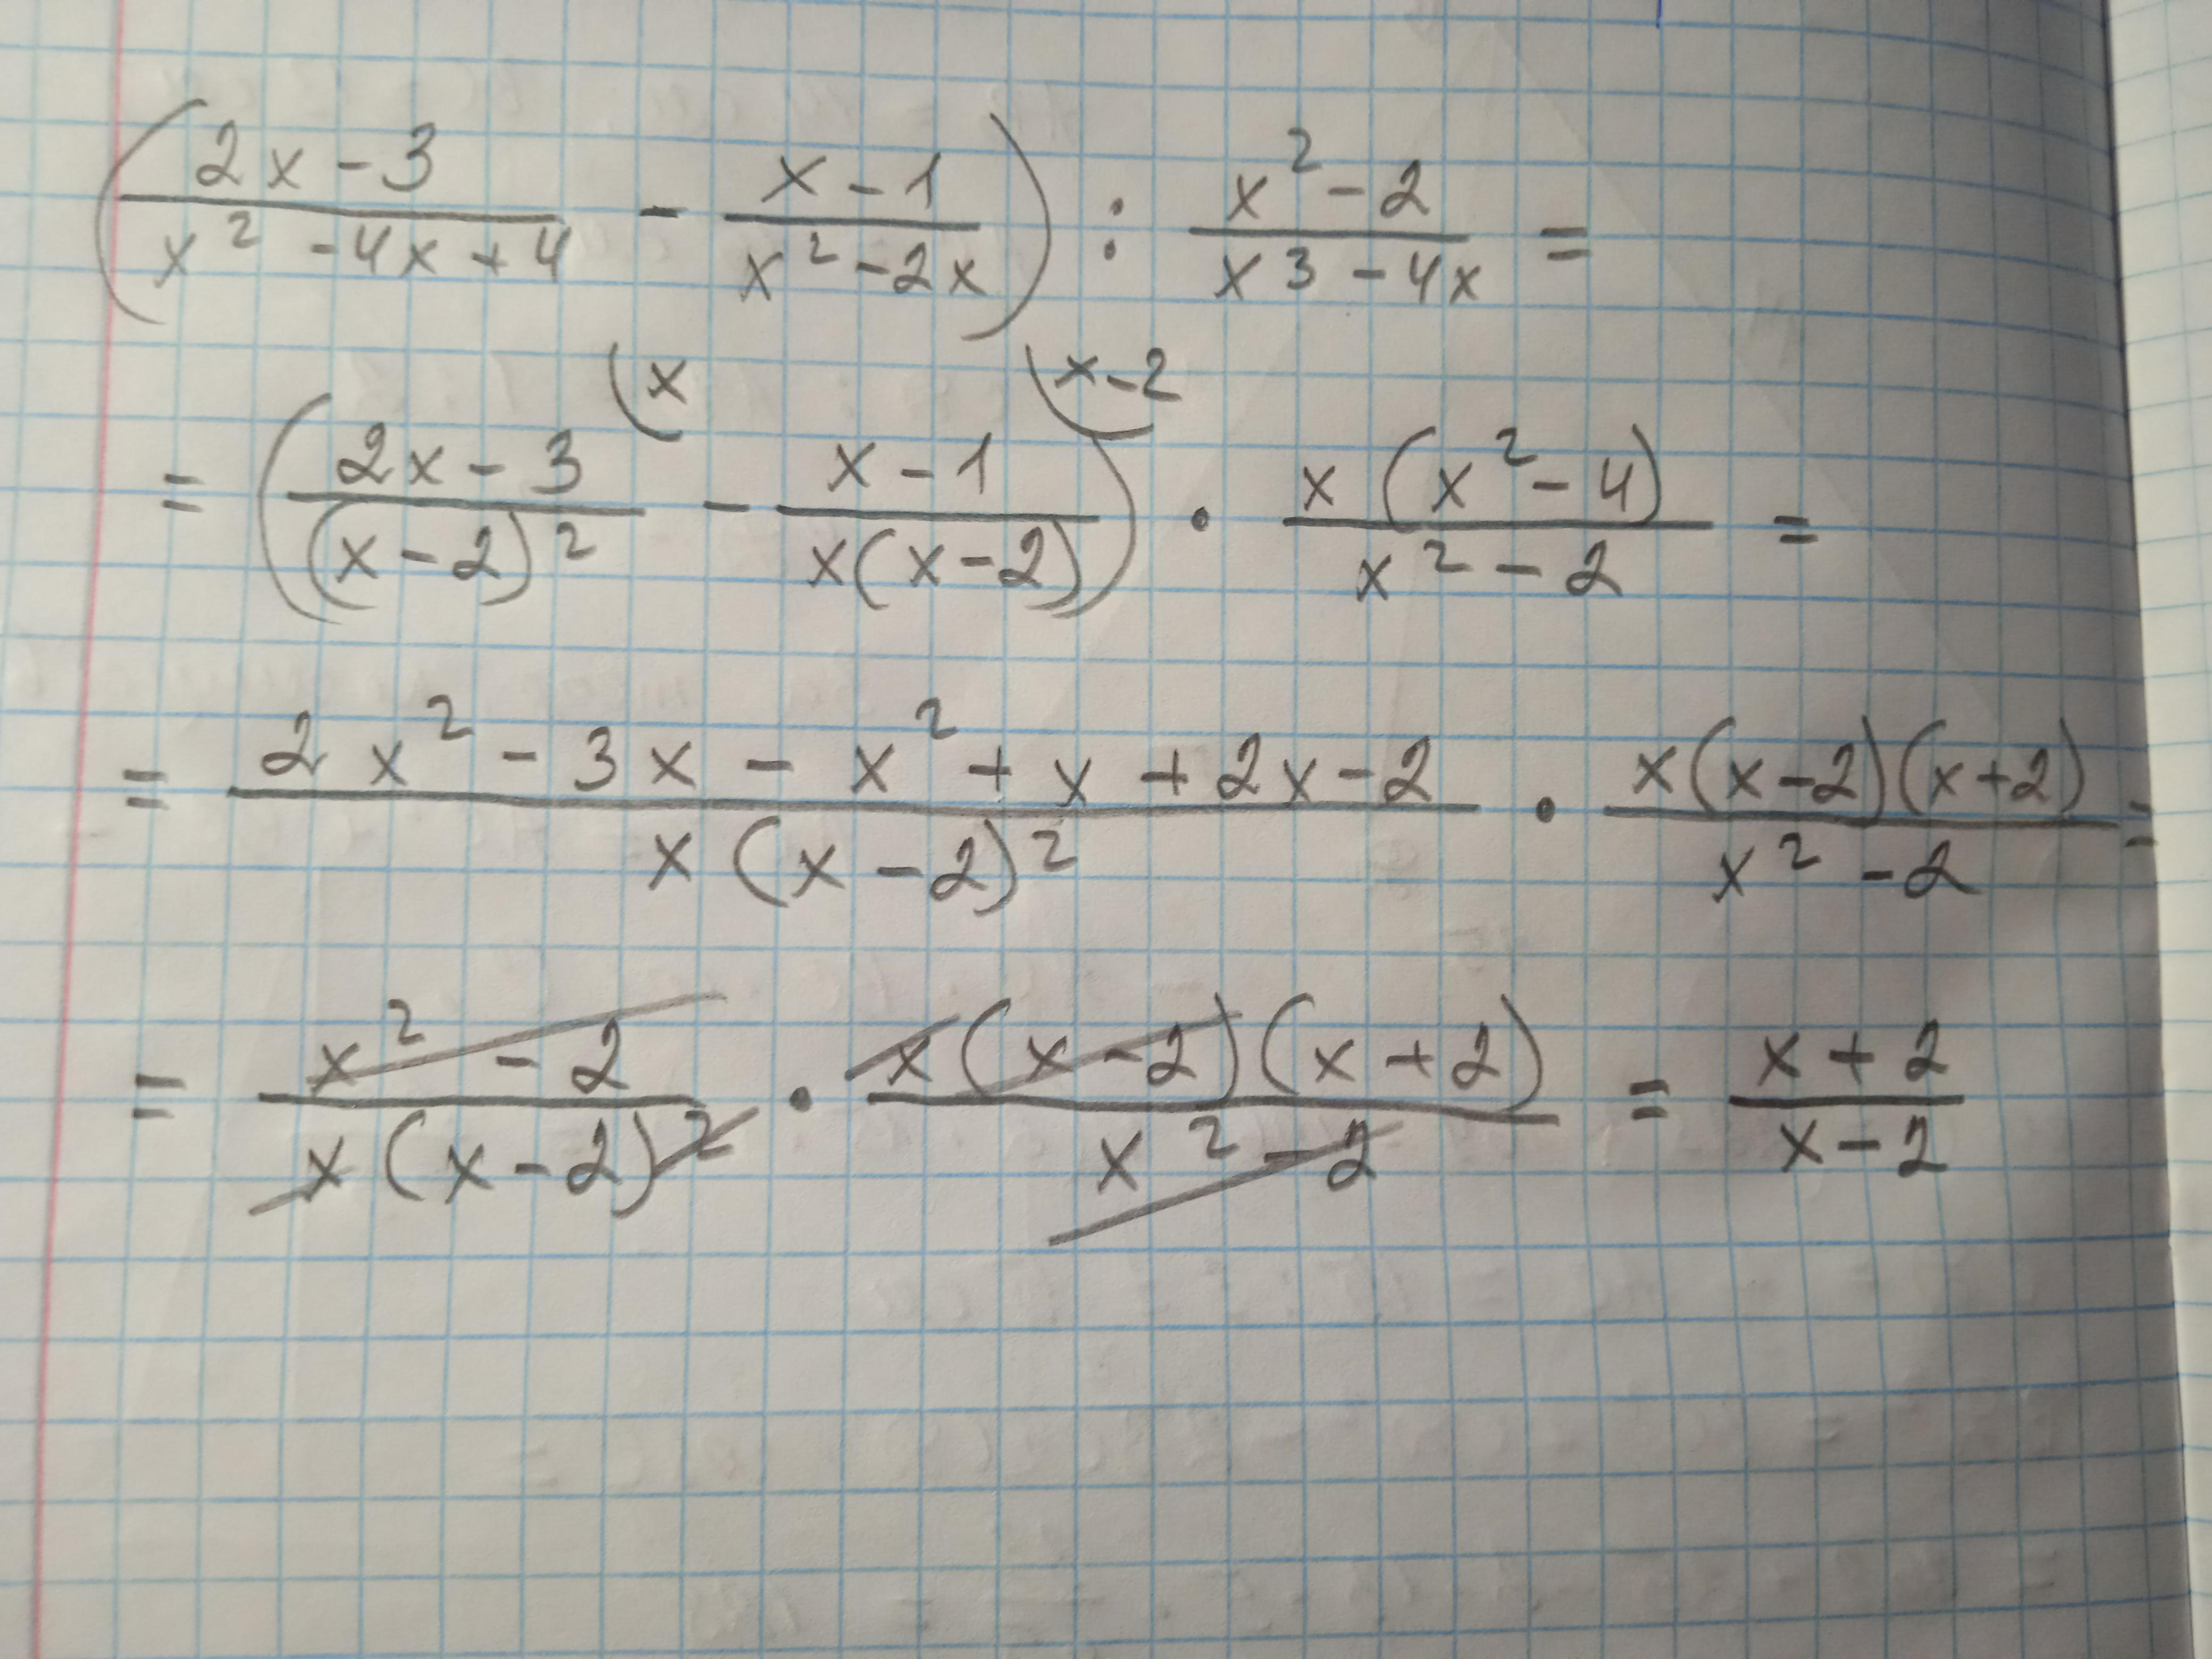 (2x - 3 / x² - 4x + 4 - x - 1 / x² - 2x) : x² - 2 / x³ - 4x =
= (2x - 3 (x / (x - 2)² - x - 1 (x - 2 / x(x - 2)) · x(x² - 4) / x² - 2 =
= 2x² - 3x - x² + x + 2x - 2 / x(x - 2)² · x(x - 2)(x + 2) / x² - 2 =
= x² - 2 / x(x - 2)² · x(x - 2)(x + 2) / x² - 2 = x + 2 / x - 2